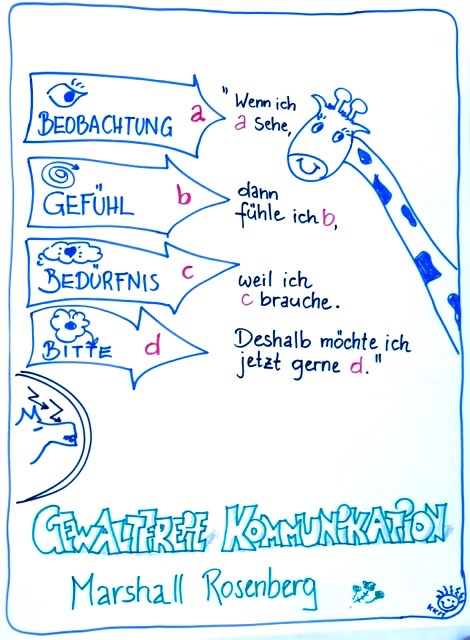 BEOBACHTUNG a
"Wenn ich
a sehe,
GEFÜHL b
dann
fühle ich b,
BEDÜRFNIS c
weil ich
c brauche.
BITTE d
Deshalb möchte ich
jetzt gerne d."
GEWALTFREIE KOMMUNIKATION
Marshall Rosenberg